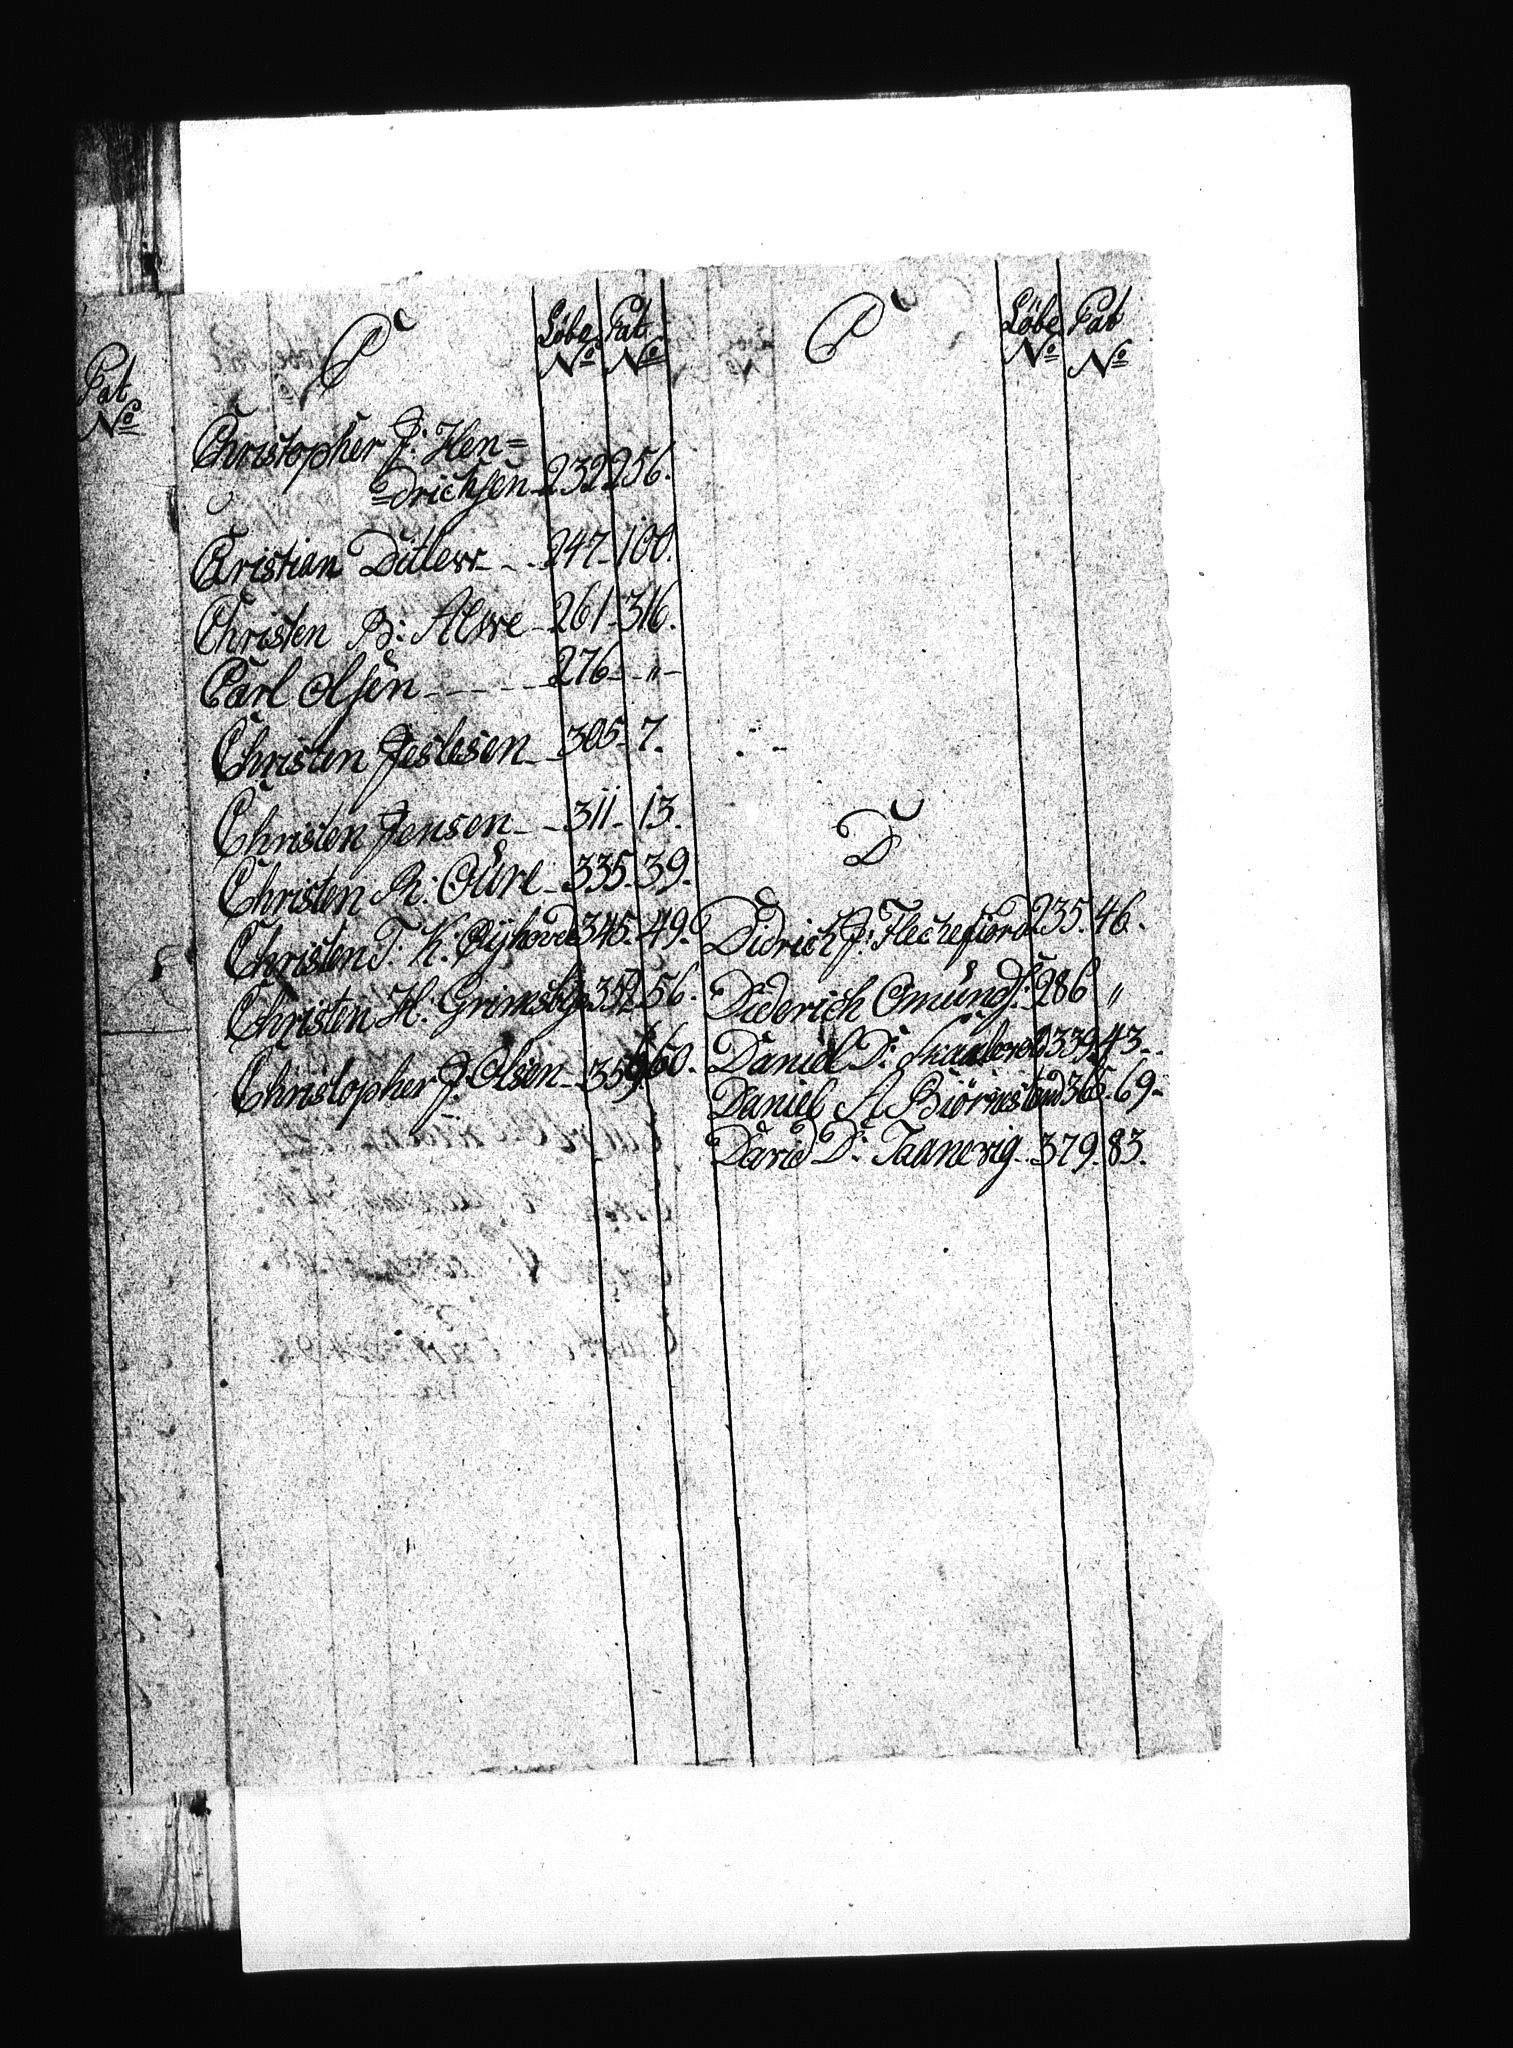 Pat
No
C
Löbe No
Pat No
Christopher J: Hen=
=drichsen 232 256.
Christian Ditlevs 247 100.
Christen B: Alwe 261 316.
Carl Olsen 276 "
Christen Jeslesen 305 7.
Christen Jensen 311 13.
Christen R: Oure 335 39.
Christen T: K: 345 49.
Christen H: Grimsbye 352 56.
Christopher J: Olsen 359 60.
C
Löbe No
Pat No
D
Didrich J: Flechefiord 235. 46.
Diderich Omunds: 286 "
Daniel D: 339 43
Daniel A Biörnstad 365. 69
David D: Taanevig 379. 83.